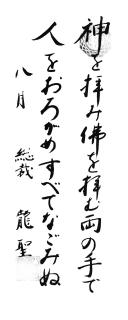 神を拝み佛を拝む両の手で
人をおろがめすべてなごみぬ
八月
総裁 龍聖